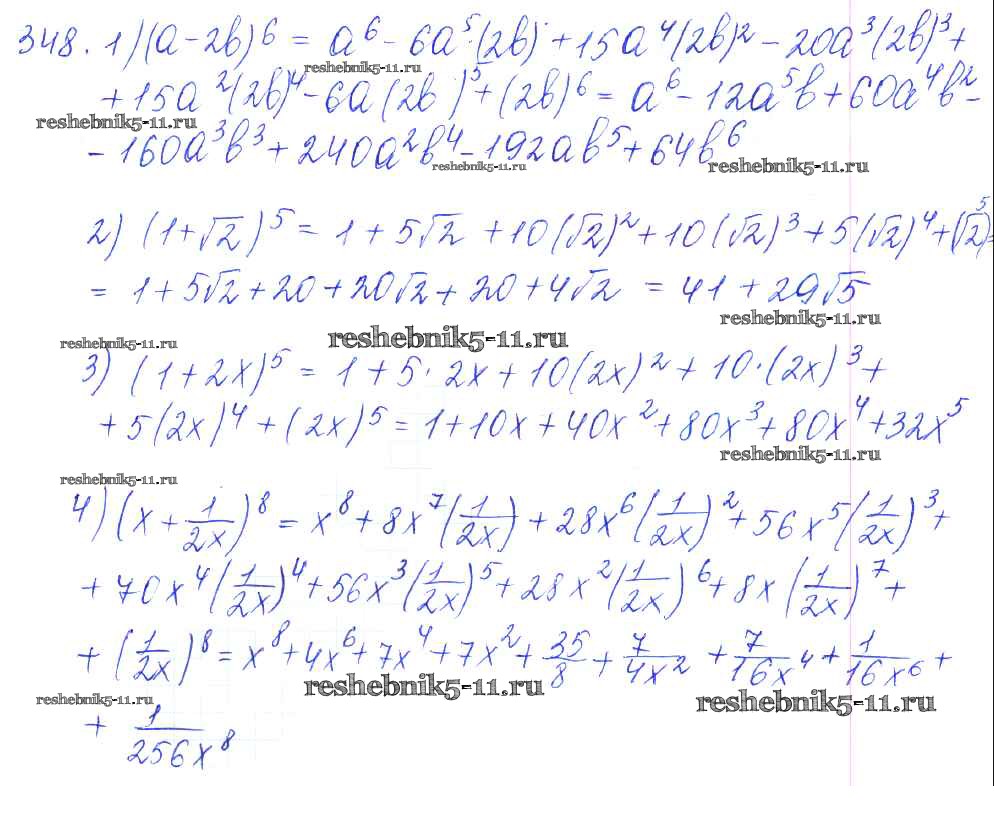 348. 1) (a - 2b)^6 = a^6 - 6a^5·(2b) + 15a^4(2b)^2 - 20a^3(2b)^3 +
reshebnik5-11.ru
+ 15a^2(2b)^4 - 6a(2b)^5 + (2b)^6 = a^6 - 12a^5b + 60a^4b^2 -
reshebnik5-11.ru
- 160a^3b^3 + 240a^2b^4 - 192ab^5 + 64b^6
reshebnik5-11.ru reshebnik5-11.ru
2) (1+√2)^5 = 1 + 5√2 + 10(√2)^2 + 10(√2)^3 + 5(√2)^4 + (√2)^5 =
= 1 + 5√2 + 20 + 20√2 + 20 + 4√2 = 41 + 29√5
reshebnik5-11.ru
reshebnik5-11.ru reshebnik5-11.ru
3) (1+2x)^5 = 1 + 5·2x + 10(2x)^2 + 10·(2x)^3 +
+ 5(2x)^4 + (2x)^5 = 1 + 10x + 40x^2 + 80x^3 + 80x^4 + 32x^5
reshebnik5-11.ru
reshebnik5-11.ru
4) (x + 1/2x)^8 = x^8 + 8x^7(1/2x) + 28x^6(1/2x)^2 + 56x^5(1/2x)^3 +
+ 70x^4(1/2x)^4 + 56x^3(1/2x)^5 + 28x^2(1/2x)^6 + 8x(1/2x)^7 +
+ (1/2x)^8 = x^8 + 4x^6 + 7x^4 + 7x^2 + 35/8 + 7/4x^2 + 7/16x^4 + 1/16x^6 +
reshebnik5-11.ru reshebnik5-11.ru reshebnik5-11.ru
+ 1/256x^8